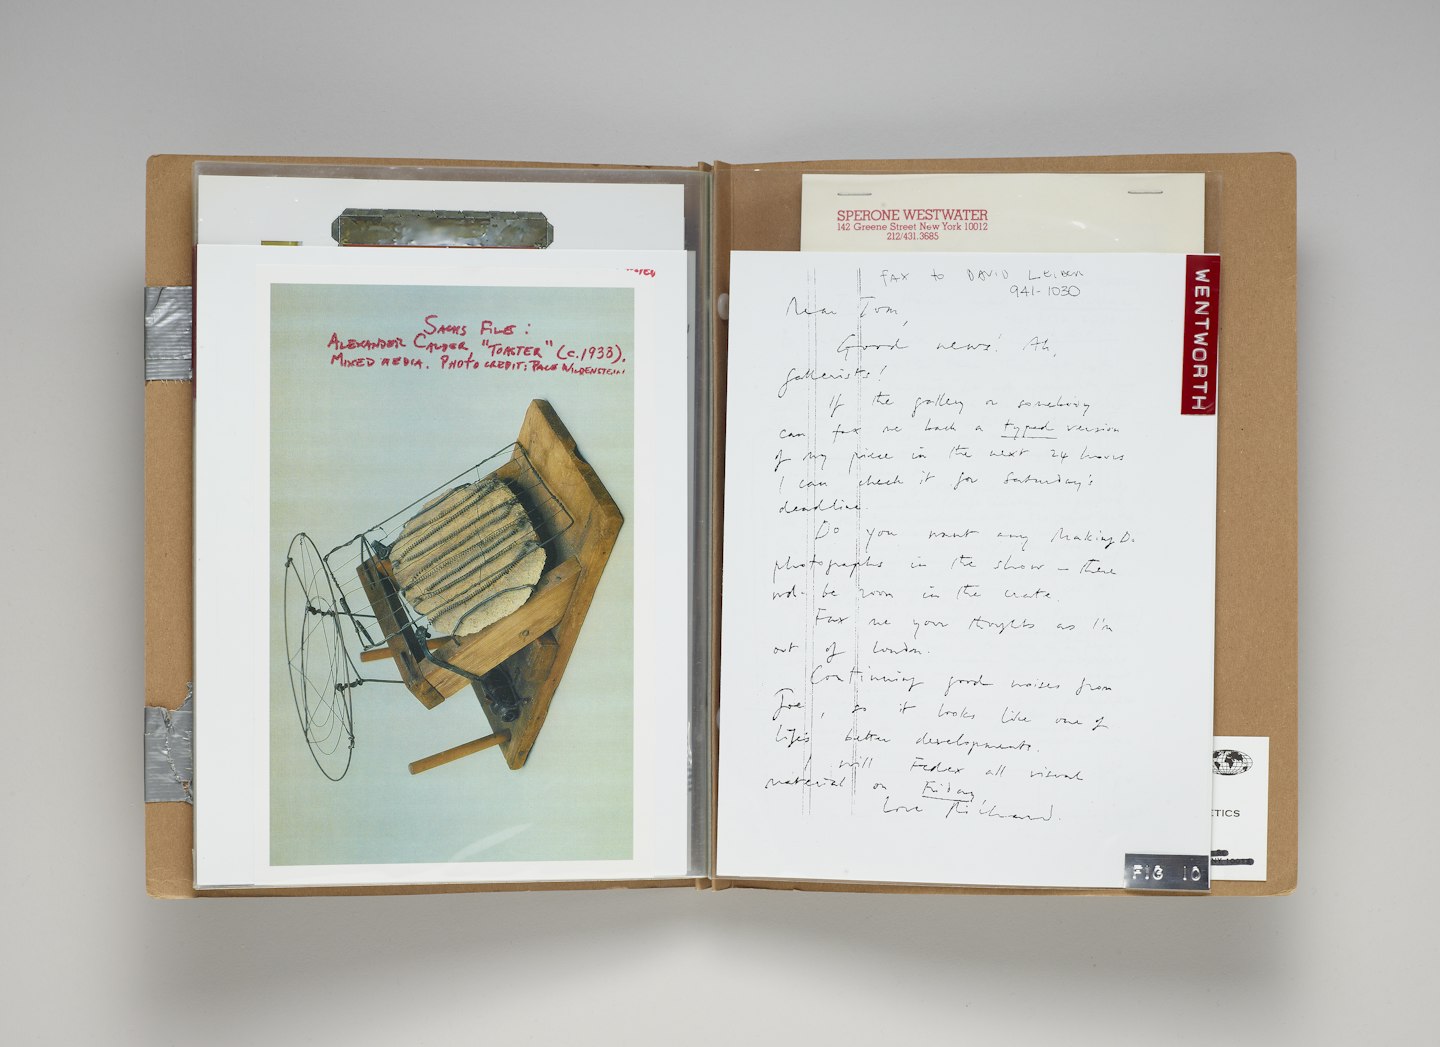 SACHS FILE:
ALEXANDER CALDER "TOASTER" (c.1933).
MIXED MEDIA. PHOTO CREDIT: PACE WILDENSTEIN
SPERONE WESTWATER
142 Greene Street New York 10012
212/431.3685
WENTWORTH
FAX to DAVID LEIBER
941-1030
Dear Tom,
Good news! Ah,
gallerists!
If the gallery or somebody
can fax me back a typed version
of my piece in the next 24 hours
I can check it for Saturday's
deadline.
Do you want any Making D.
photographs in the show – there
wd. be room in the crate.
Fax me your thoughts as I'm
out of London.
Continuing good noises from
Joe, so it looks like one of
life's better developments.
I will Fedex all visual
material on Friday
Love Richard.
ETICS
FIG 10